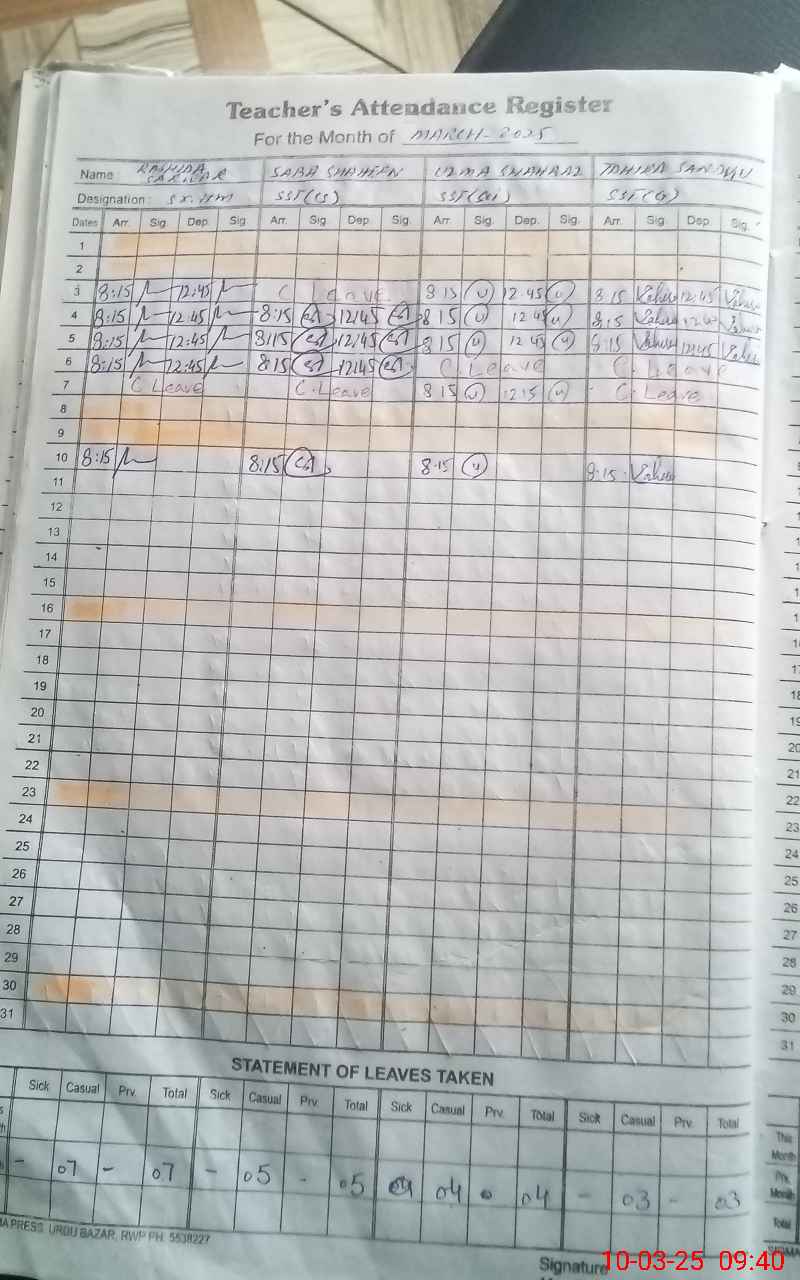 Teacher's Attendance Register
For the Month of MARCH-2025
Name : SABA SHAHEEN
Designation : SST(CS) SST(G)
Dates Arr. Sig. Dep. Sig. Arr. Sig. Dep. Sig. Arr. Sig. Dep. Sig. Arr. Sig. Dep. Sig.
1
2
3 8:15 12:45 C Leave 8 15 12 45 8 15 12:45
4 8:15 12:45 8:15 12:45 8 15 12 45 8:15
5 8:15 12:45 8:15 12:45 8 15 12 45 8:15 12:45
6 8:15 12:45 8:15 12:45 C. Leave C. Leave
7 C Leave C. Leave 8 15 12:15 C. Leave
8
9
10 8:15 8:15 8:15 8:15
11
12
13
14
15
16
17
18
19
20
21
22
23
24
25
26
27
28
29
30
31
STATEMENT OF LEAVES TAKEN
Sick Casual Prv. Total Sick Casual Prv. Total Sick Casual Prv. Total Sick Casual Prv. Total
- 07 - 07 - 05 - 05 04 04 - 03 - 03
PRESS, URDU BAZAR, RWP PH: 5538227
Signature
This Month
Prv. Month
Total
10-03-25 09:40